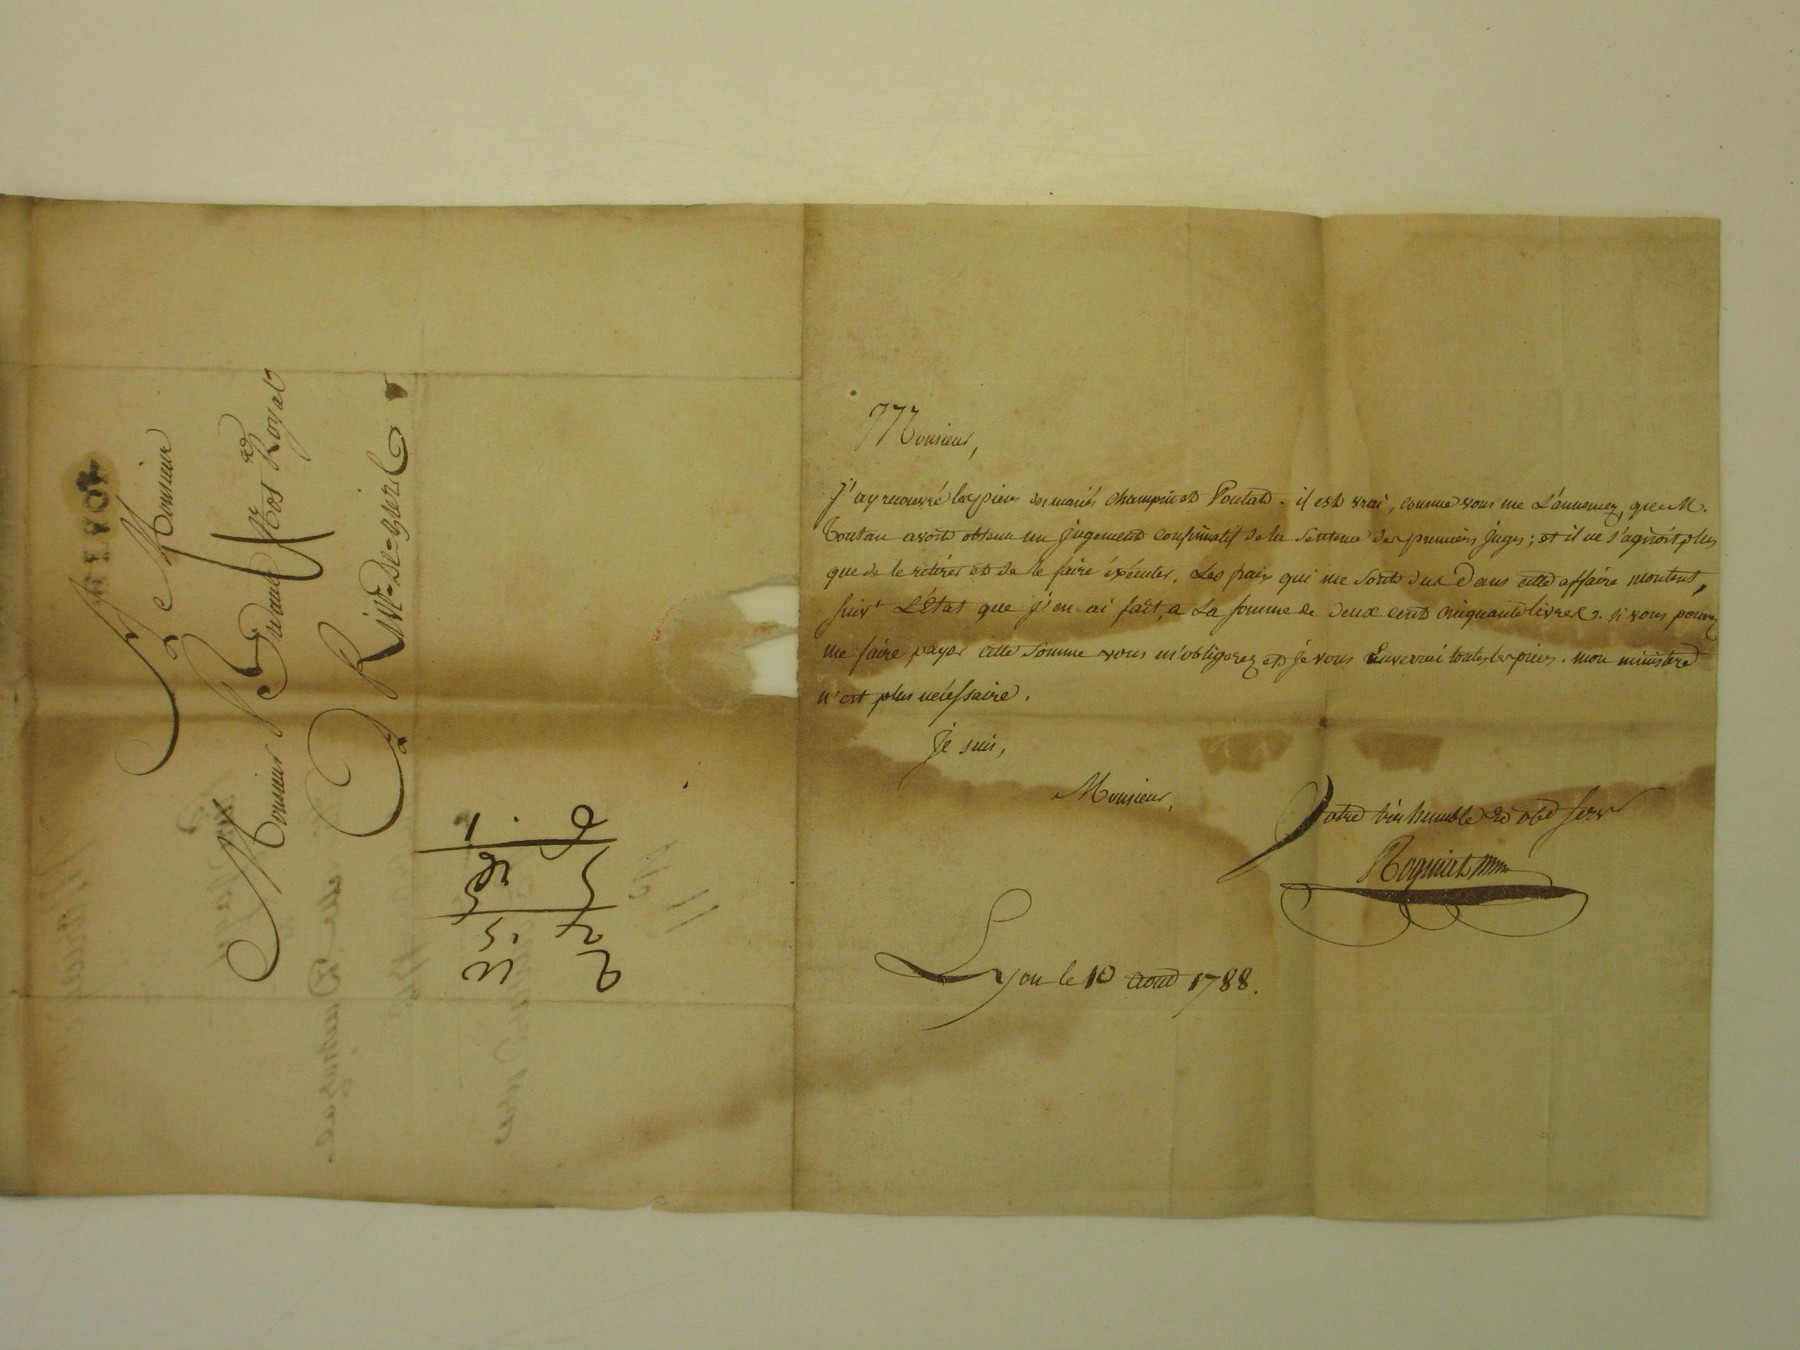 Monsieur,
J'ay recouvré les pieces des mariés Champin et Poutat. il est vrai, comme vous me L'annoncez, que M.
avoit obtenu un jugement confirmatif de la sentence des premiers juges; et il ne s'agiroit plus
que de le retirer et de le faire éxécuter. Les frais qui me sont dus dans cette affaire montent,
suivt L'État que j'en ai fait, a La somme de deux cent cinquante livres. si vous pouvez
me faire payer cette somme vous m'obligerez et je vous Enverrai toutes les pieces. mon ministere
n'est plus nécessaire.
Je suis,
Monsieur,
Votre très humble et obt serv
Lyon le 10 aoust 1788.
LYON
A Monsieur
Monsieur Royal
A Rive-De-gier